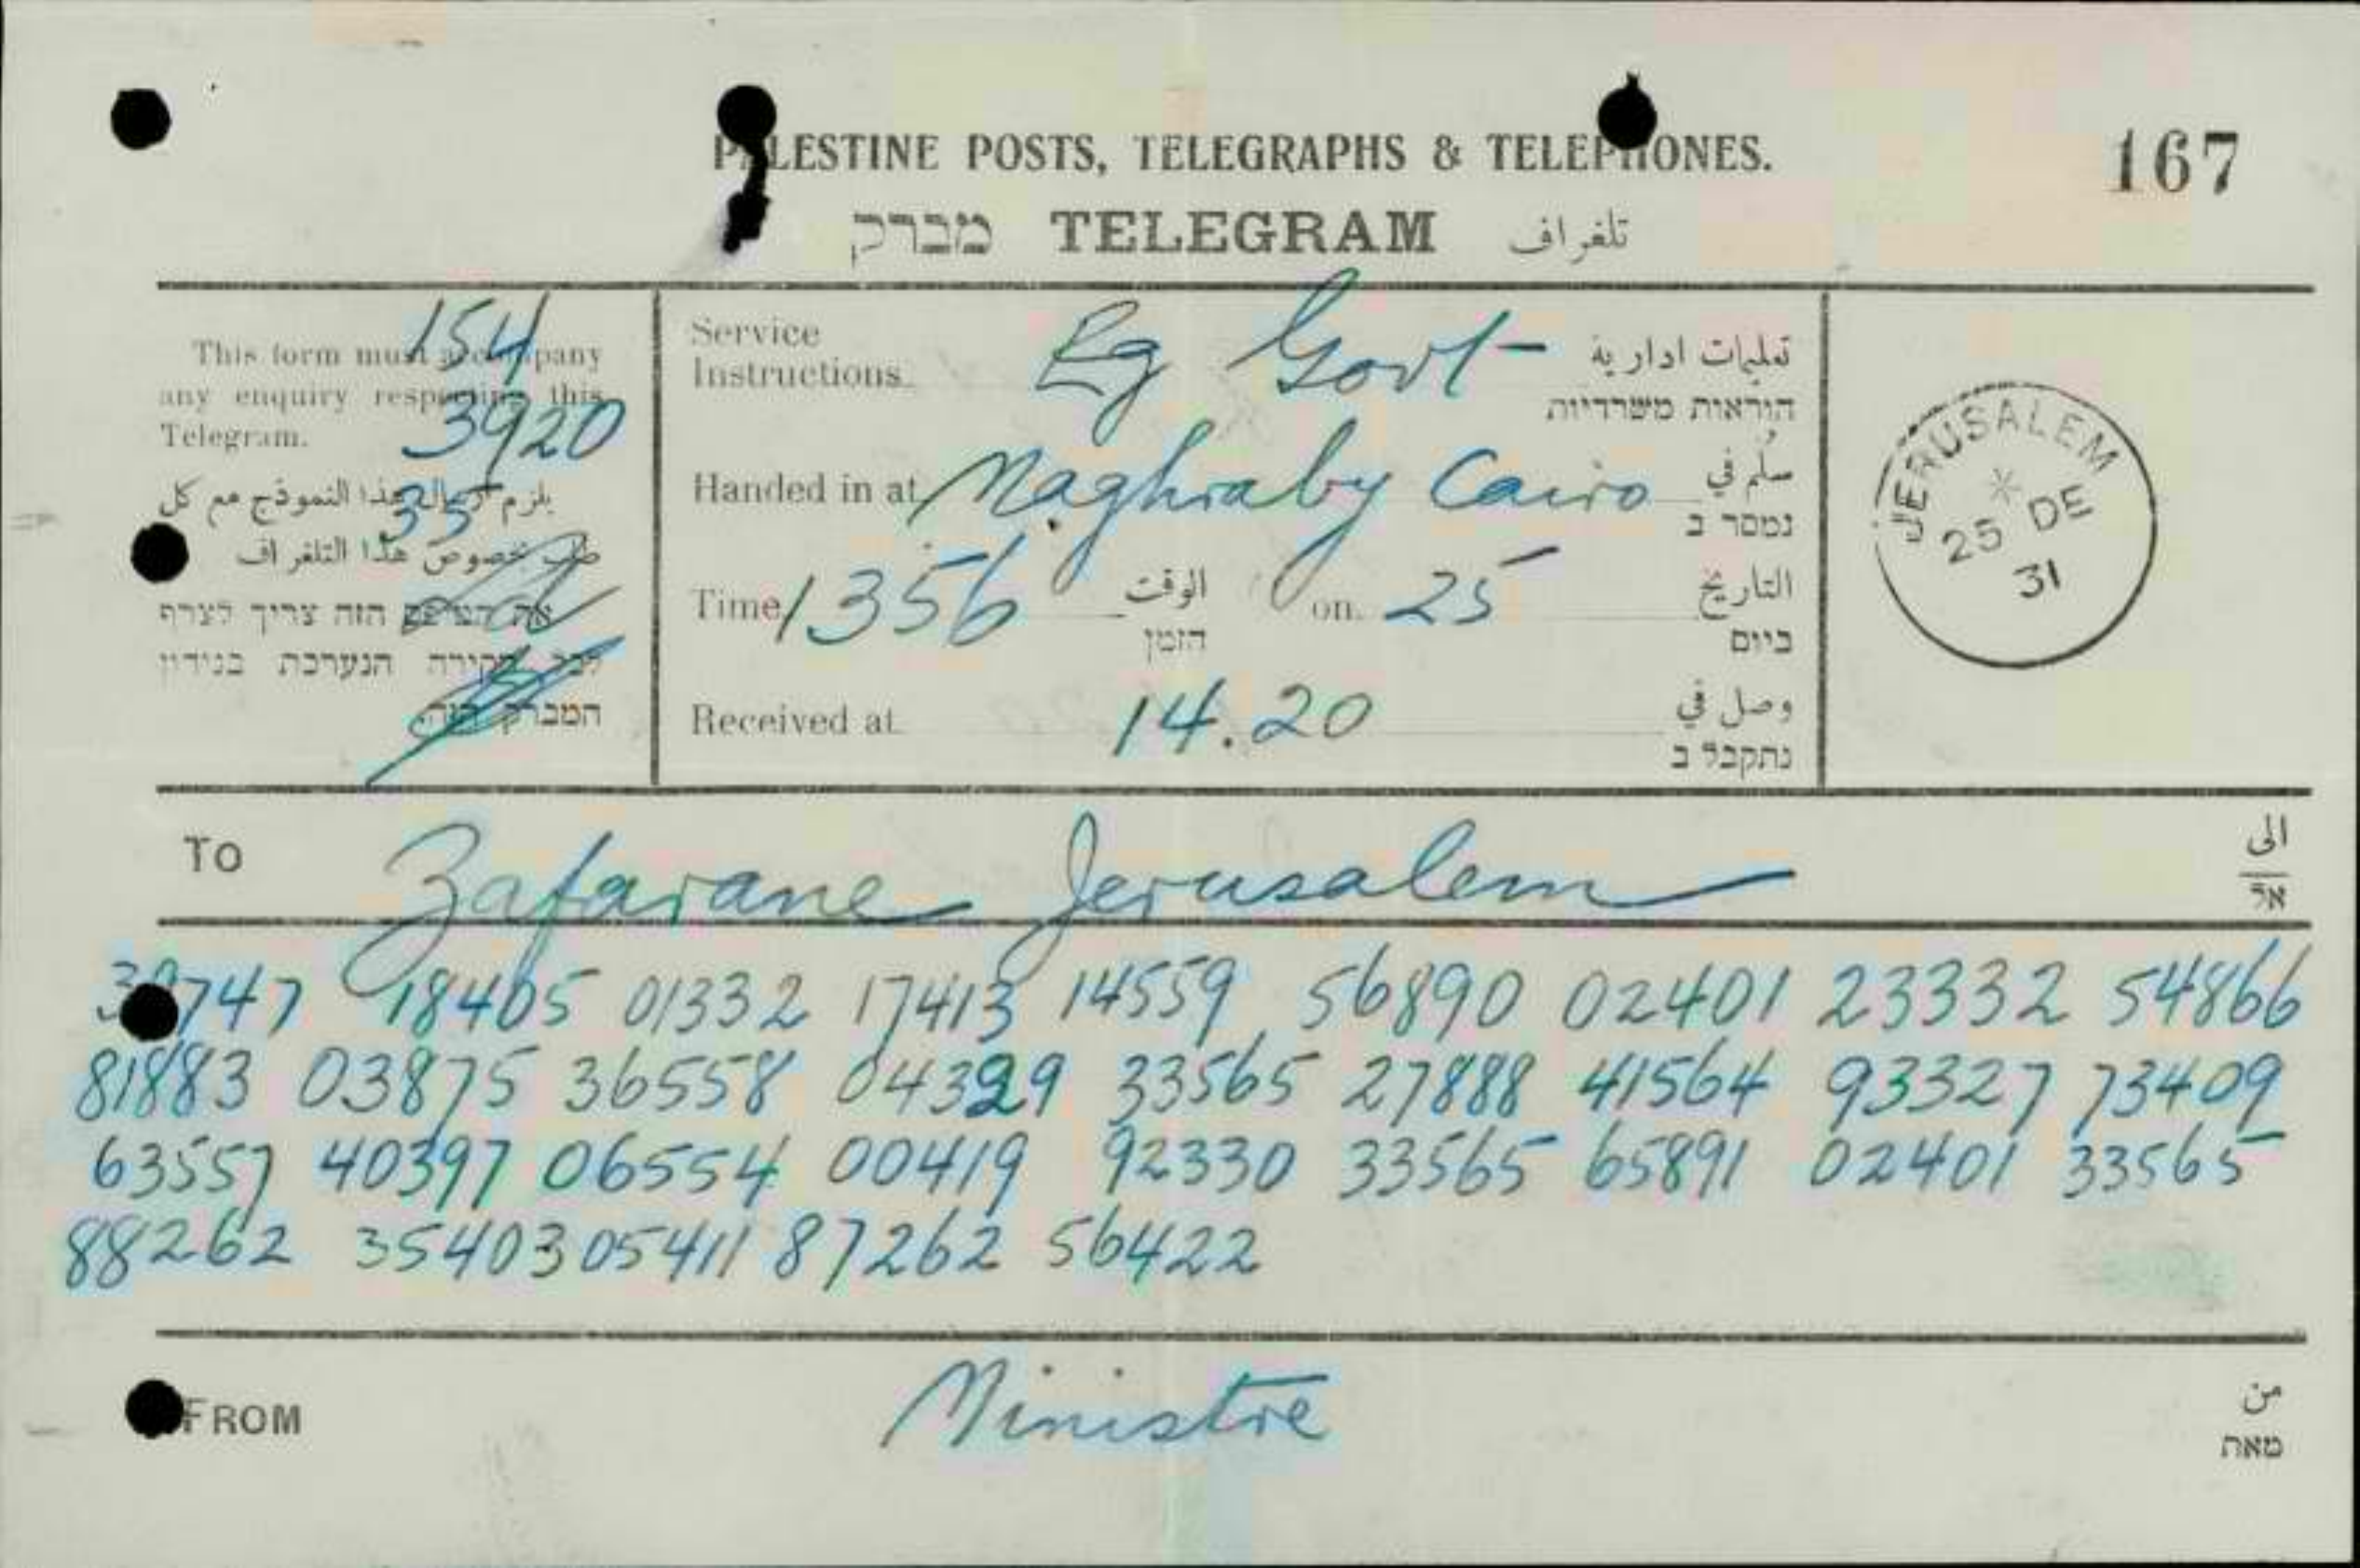 PALESTINE POSTS, TELEGRAPHS & TELEPHONES.
167
מברק TELEGRAM تلغراف
154
This form must accompany
any enquiry respecting this
Telegram.
3920
35
يلزم ارسال هذا النموذج مع كل
طلب بخصوص هذا التلغراف
את הטופס הזה צריך לצרף
לכל חקירה הנערכת בנידון
המברק הזה.
Service
Instructions Eg Govt تعليمات ادارية
הוראות משרדיות
Handed in at Maghraby Cairo سلم في
נמסר ב
Time 1356 الوقت on 25 التاريخ
הזמן ביום
Received at 14.20 وصل في
נתקבל ב
JERUSALEM
25 DE
31
To Zafarane Jerusalem الى
אל
18405 01332 17413 14559 56890 02401 23332 54866
81883 03875 36558 04329 33565 27888 41564 93327 73409
63557 40397 06554 00419 92330 33565 65891 02401 33565
88262 35403 05411 87262 56422
FROM Ministre من
מאת